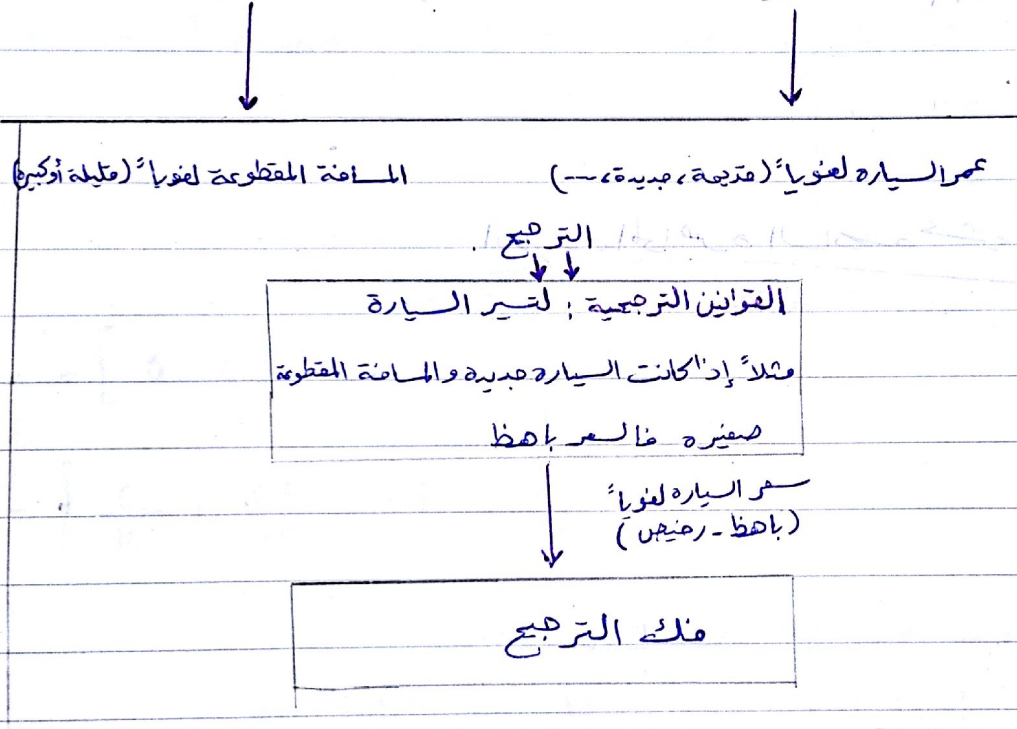 عمر السياره لغوياً (قديمة، جديدة، ---) المسافة المقطوعة لغوياً (قليلة أوكبيرة)
الترجيح.
القوانين الترجيحية : لتسير السيارة
مثلاً إذا كانت السياره جديده والمسافة المقطوعة
صغيره فالسعر باهظ
سعر السياره لغوياً
(باهظ - رخيص)
فك الترجيح